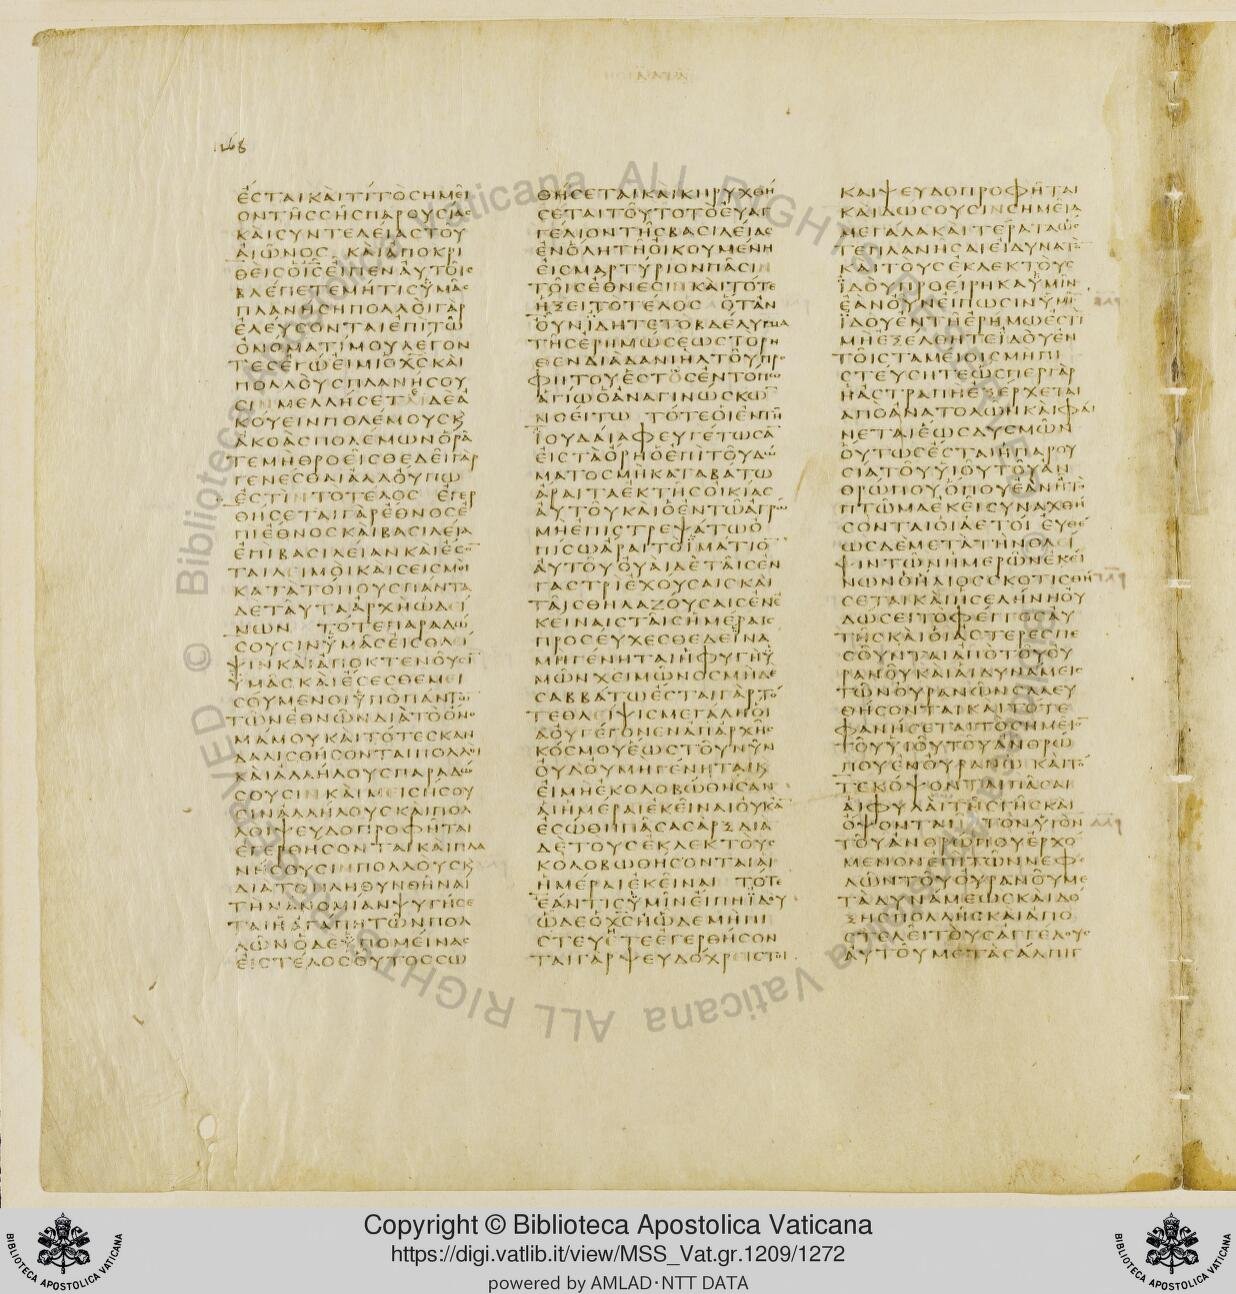 ΕСΤΑΙΚΑΙΤΙΤΟСΗΜΕΙ
ΟΝΤΗССΗСΠΑΡΟΥСΙΑС
ΚΑΙСΥΝΤΕΛΕΙΑСΤΟΥ
ΑΙΩΝΟС ΚΑΙΑΠΟΚΡΙ
ΘΕΙСΟΙСΕΙΠΕΝΑΥΤΟΙС
ΒΛΕΠΕΤΕΜΗΤΙСΥΜΑС
ΠΛΑΝΗСΗΠΟΛΛΟΙΓΑΡ
ΕΛΕΥСΟΝΤΑΙΕΠΙΤΩ
ΟΝΟΜΑΤΙΜΟΥΛΕΓΟΝ
ΤΕСΕΓΩΕΙΜΙΟΧСΚΑΙ
ΠΟΛΛΟΥСΠΛΑΝΗСΟΥ
СΙΝΜΕΛΛΗСΕΤΑΙΔΕΑ
ΚΟΥΕΙΝΠΟΛΕΜΟΥСΚ
ΑΚΟΑСΠΟΛΕΜΩΝΟΡΑ
ΤΕΜΗΘΡΟΕΙСΘΕΔΕΙΓΑΡ
ΓΕΝΕСΘΑΙΑΛΛΟΥΠΩ
ΕСΤΙΝΤΟΤΕΛΟС ΕΓΕΡ
ΘΗСΕΤΑΙΓΑΡΕΘΝΟСΕ
ΠΙΕΘΝΟСΚΑΙΒΑСΙΛΕΙΑ
ΕΠΙΒΑСΙΛΕΙΑΝΚΑΙΕС
ΤΑΙΛΕΙΜΟΙΚΑΙСΕΙСΜΟΙ
ΚΑΤΑΤΟΠΟΥСΠΑΝΤΑ
ΔΕΤΑΥΤΑΑΡΧΗΩΔΕΙ
ΝΩΝ ΤΟΤΕΠΑΡΑΔΩ
СΟΥСΙΝΥΜΑСΕΙСΘΛΕΙ
ΨΙΝΚΑΙΑΠΟΚΤΕΝΟΥСΙ
ΥΜΑСΚΑΙΕСΕСΘΕΜΕΙ
СΟΥΜΕΝΟΙΥΠΟΠΑΝΤΩ
ΤΩΝΕΘΝΩΝΔΙΑΤΟΟΝΟ
ΜΑΜΟΥΚΑΙΤΟΤΕСΚΑΝ
ΔΑΛΙСΘΗСΟΝΤΑΙΠΟΛΛΟΙ
ΚΑΙΑΛΛΗΛΟΥСΠΑΡΑΔΩ
СΟΥСΙΝΚΑΙΜΕΙСΗСΟΥ
СΙΝΑΛΛΗΛΟΥСΚΑΙΠΟΛ
ΛΟΙΨΕΥΔΟΠΡΟΦΗΤΑΙ
ΕΓΕΡΘΗСΟΝΤΑΙΚΑΙΠΛΑ
ΝΗСΟΥСΙΝΠΟΛΛΟΥСΚ
ΔΙΑΤΟΠΛΗΘΥΝΘΗΝΑΙ
ΤΗΝΑΝΟΜΙΑΝΨΥΓΗСΕ
ΤΑΙΗΑΓΑΠΗΤΩΝΠΟΛ
ΛΩΝΟΔΕΥΠΟΜΕΙΝΑС
ΕΙСΤΕΛΟСΟΥΤΟССΩ
ΘΗСΕΤΑΙΚΑΙΚΗΡΥΧΘΗ
СΕΤΑΙΤΟΥΤΟΤΟΕΥΑΓ
ΓΕΛΙΟΝΤΗСΒΑСΙΛΕΙΑС
ΕΝΟΛΗΤΗΟΙΚΟΥΜΕΝΗ
ΕΙСΜΑΡΤΥΡΙΟΝΠΑСΙΝ
ΤΟΙСΕΘΝΕСΙΝΚΑΙΤΟΤΕ
ΗΞΕΙΤΟΤΕΛΟС ΟΤΑΝ
ΟΥΝΙΔΗΤΕΤΟΒΔΕΛΥΓΜΑ
ΤΗСΕΡΗΜΩСΕΩСΤΟΡΗ
ΘΕΝΔΙΑΔΑΝΙΗΛΤΟΥΠΡΟ
ΦΗΤΟΥΕСΤΟСΕΝΤΟΠΩ
ΑΓΙΩΟΑΝΑΓΙΝΩСΚΩ
ΝΟΕΙΤΩ ΤΟΤΕΟΙΕΝΤΗ
ΙΟΥΔΑΙΑΦΕΥΓΕΤΩСΑ
ΕΙСΤΑΟΡΗΟΕΠΙΤΟΥΔΩ
ΜΑΤΟСΜΗΚΑΤΑΒΑΤΩ
ΑΡΑΙΤΑΕΚΤΗСΟΙΚΙΑС
ΑΥΤΟΥΚΑΙΟΕΝΤΩΑΓΡΩ
ΜΗΕΠΙСΤΡΕΨΑΤΩΟ
ΠΙСΩΑΡΑΙΤΟΙΜΑΤΙΟ
ΑΥΤΟΥΟΥΑΙΔΕΤΑΙСΕΝ
ΓΑСΤΡΙΕΧΟΥСΑΙСΚΑΙ
ΤΑΙСΘΗΛΑΖΟΥСΑΙСΕΝΕ
ΚΕΙΝΑΙСΤΑΙСΗΜΕΡΑΙС
ΠΡΟСΕΥΧΕСΘΕΔΕΙΝΑ
ΜΗΓΕΝΗΤΑΙΗΦΥΓΗΥ
ΜΩΝΧΕΙΜΩΝΟСΜΗΔΕ
СΑΒΒΑΤΩΕСΤΑΙΓΑΡΤΟ
ΤΕΘΛΕΙΨΙСΜΕΓΑΛΗΟΙ
ΑΟΥΓΕΓΟΝΕΝΑΠΑΡΧΗС
ΚΟСΜΟΥΕΩСΤΟΥΝΥΝ
ΟΥΔΟΥΜΗΓΕΝΗΤΑΙΚ
ΕΙΜΗΕΚΟΛΟΒΩΘΗСΑΝ
ΑΙΗΜΕΡΑΙΕΚΕΙΝΑΙΟΥΚΑ
ΕСΩΘΗΠΑСΑСΑΡΞΔΙΑ
ΔΕΤΟΥСΕΚΛΕΚΤΟΥС
ΚΟΛΟΒΩΘΗСΟΝΤΑΙΑΙ
ΗΜΕΡΑΙΕΚΕΙΝΑΙ ΤΟΤΕ
ΕΑΝΤΙСΥΜΙΝΕΙΠΗΙΔΟΥ
ΩΔΕΟΧСΗΩΔΕΜΗΠΙ
СΤΕΥΗΤΕΕΓΕΡΘΗСΟΝ
ΤΑΙΓΑΡΨΕΥΔΟΧΡΕΙСΤΟΙ
ΚΑΙΨΕΥΔΟΠΡΟΦΗΤΑΙ
ΚΑΙΔΩСΟΥСΙΝСΗΜΕΙΑ
ΜΕΓΑΛΑΚΑΙΤΕΡΑΤΑΩС
ΤΕΠΛΑΝΗСΑΙΕΙΔΥΝΑΤΟ
ΚΑΙΤΟΥСΕΚΛΕΚΤΟΥС
ΙΔΟΥΠΡΟΕΙΡΗΚΑΥΜΙΝ
ΕΑΝΟΥΝΕΙΠΩСΙΝΥΜΙ
ΙΔΟΥΕΝΤΗΕΡΗΜΩΕСΤΙ
ΜΗΕΞΕΛΘΗΤΕΙΔΟΥΕΝ
ΤΟΙСΤΑΜΕΙΟΙСΜΗΠΙ
СΤΕΥСΗΤΕΩСΠΕΡΓΑΡ
ΗΑСΤΡΑΠΗΕΞΕΡΧΕΤΑΙ
ΑΠΟΑΝΑΤΟΛΩΝΚΑΙΦΑΙ
ΝΕΤΑΙΕΩСΔΥСΜΩΝ
ΟΥΤΩСΕСΤΑΙΗΠΑΡΟΥ
СΙΑΤΟΥΥΙΟΥΤΟΥΑΝ
ΘΡΩΠΟΥΟΠΟΥΕΑΝΗΤΟ
ΠΤΩΜΑΕΚΕΙСΥΝΑΧΘΗ
СΟΝΤΑΙΟΙΑΕΤΟΙ ΕΥΘΕ
ΩСΔΕΜΕΤΑΤΗΝΘΛΕΙ
ΨΙΝΤΩΝΗΜΕΡΩΝΕΚΕΙ
ΝΩΝΟΗΛΙΟССΚΟΤΙСΘΗ
СΕΤΑΙΚΑΙΗСΕΛΗΝΗΟΥ
ΔΩСΕΙΤΟΦΕΓΓΟСΑΥ
ΤΗСΚΑΙΟΙΑСΤΕΡΕСΠΕ
СΟΥΝΤΑΙΑΠΟΤΟΥΟΥ
ΡΑΝΟΥΚΑΙΑΙΔΥΝΑΜΕΙС
ΤΩΝΟΥΡΑΝΩΝСΑΛΕΥ
ΘΗСΟΝΤΑΙΚΑΙΤΟΤΕ
ΦΑΝΗСΕΤΑΙΤΟСΗΜΕΙΟ
ΤΟΥΥΙΟΥΤΟΥΑΝΘΡΩ
ΠΟΥΕΝΟΥΡΑΝΩ ΚΑΙΤΟ
ΤΕΚΟΨΟΝΤΑΙΠΑСΑΙ
ΑΙΦΥΛΑΙΤΗСΓΗСΚΑΙ
ΟΨΟΝΤΑΙ ΤΟΝΥΙΟΝ
ΤΟΥΑΝΘΡΩΠΟΥΕΡΧΟ
ΜΕΝΟΝΕΠΙΤΩΝΝΕΦΕ
ΛΩΝΤΟΥΟΥΡΑΝΟΥΜΕ
ΤΑΔΥΝΑΜΕΩСΚΑΙΔΟ
ΞΗСΠΟΛΛΗСΚΑΙΑΠΟ
СΤΕΛΕΙΤΟΥСΑΓΓΕΛΟΥС
ΑΥΤΟΥΜΕΤΑСΑΛΠΙΓ
Copyright © Biblioteca Apostolica Vaticana
https://digi.vatlib.it/view/MSS_Vat.gr.1209/1272
powered by AMLAD·NTT DATA